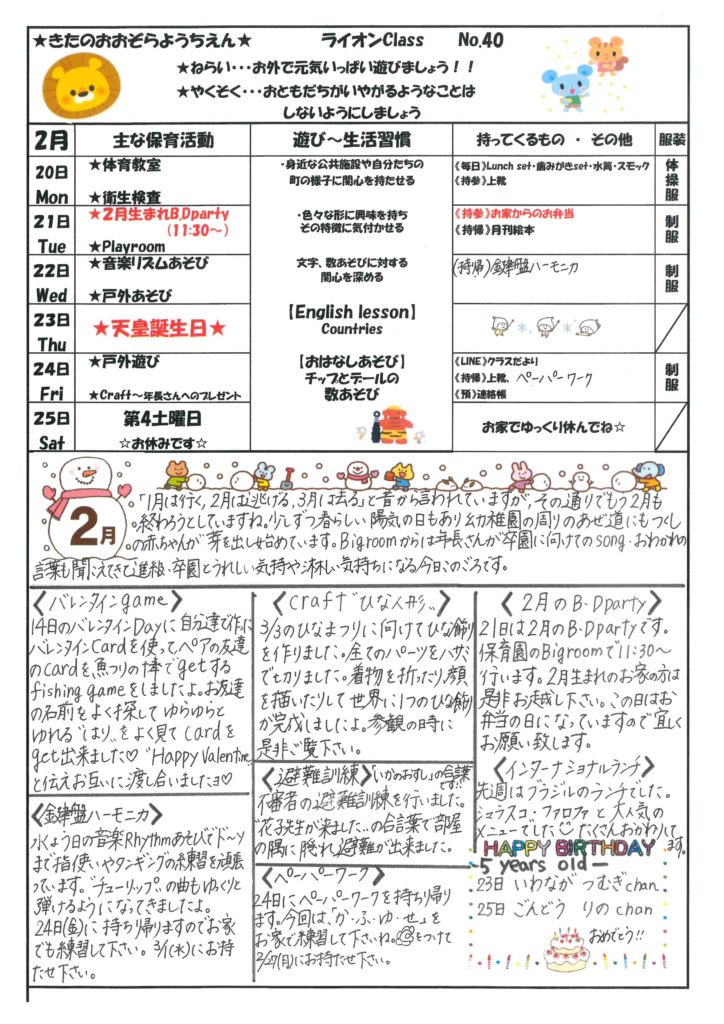 ★きたのおおぞらようちえん★　ライオンClass　No.40
★ねらい・・・お外で元気いっぱい遊びましょう！！
★やくそく・・・おともだちがいやがるようなことは
しないようにしましょう
2月　主な保育活動　遊び～生活習慣　持ってくるもの ・ その他　服装
20日 Mon
★体育教室
★衛生検査
・身近な公共施設や自分たちの
町の様子に関心を持たせる
《毎日》Lunch set・歯みがきset・水筒・スモック
《持参》上靴
体操服
21日 Tue
★2月生まれB.Dparty
(11:30～)
★Playroom
・色々な形に興味を持ち
その特徴に気付かせる
《持参》お家からのお弁当
《持帰》月刊絵本
制服
22日 Wed
★音楽リズムあそび
★戸外あそび
文字、数あそびに対する
関心を深める
(持帰)鍵盤ハーモニカ
制服
23日 Thu
★天皇誕生日★
【English lesson】
Countries
24日 Fri
★戸外遊び
★Craft～年長さんへのプレゼント
【おはなしあそび】
チップとデールの
数あそび
《LINE》クラスだより
《持帰》上靴、ペーパーワーク
《預》連絡帳
制服
25日 Sat
第4土曜日
☆お休みです☆
お家でゆっくり休んでね☆
2月
「1月は行く、2月は逃げる、3月は去る」と昔から言われていますが、その通りでもう2月も
終わろうとしていますね。少しずつ春らしい陽気の日もあり幼稚園の周りのあぜ道にもつくし
の赤ちゃんが芽を出し始めています。Bigroomからは年長さんが卒園に向けてのsong・おわかれの
言葉も聞こえてきて進級・卒園とうれしい気持や淋しい気持ちになる今日このごろです。
〈バレンタインgame〉
14日のバレンタインDayに自分達で作た
バレンタインCardを使ってペアの友達
のcardを魚つりの棒でgetする
fishing gameをしましたよ。お友達
の名前をよく探してゆらゆらと
ゆれる"はり"をよく見てcardを
get出来ました♡"Happy Valentine"
と伝えお互いに渡し合いましたヨ♡
〈鍵盤ハーモニカ〉
水よう日の音楽Rhythmあそびでド～ソ
まで指使いやタンギングの練習を頑張
っています。"チューリップ"の曲もゆっくりと
弾けるようになってきましたよ。
24日(金)に持ち帰りますのでお家
でも練習して下さい。3/1(水)にお持
たせ下さい。
〈craft"ひな人形"〉
3/3のひなまつりに向けてひな飾り
を作りました。全てのパーツをハサミ
で切りました。着物を折ったり、顔
を描いたりして世界に1つのひな飾り
が完成しましたよ。参観の時に
是非ご覧下さい。
〈避難訓練〉"いかのおすし"の合言葉です!!
不審者の避難訓練を行いました。
"花子先生が来ました"の合言葉で部屋
の隅に隠れ避難が出来ました。
〈ペーパーワーク〉
24日にペーパーワークを持ち帰り
ます。今回は、「か・ふ・ゆ・せ」を
お家で練習して下さいね。をつけて
2/27(月)にお持たせ下さい。
〈2月のB・Dparty〉
21日は2月のB・Dpartyです。
保育園のBigroomで11:30～
行います。2月生まれのお家の方は
是非お越し下さい。この日はお
弁当の日になっていますので宜しく
お願い致します。
〈インターナショナルランチ〉
先週はブラジルのランチでした。
シュラスコ、ファロファと大人気の
メニューでしたたくさんおかわりしてます。
HAPPY BIRTHDAY
－5 years old－
23日 いわなが つむぎchan
25日 ごんどう りのchan
おめでとう!!